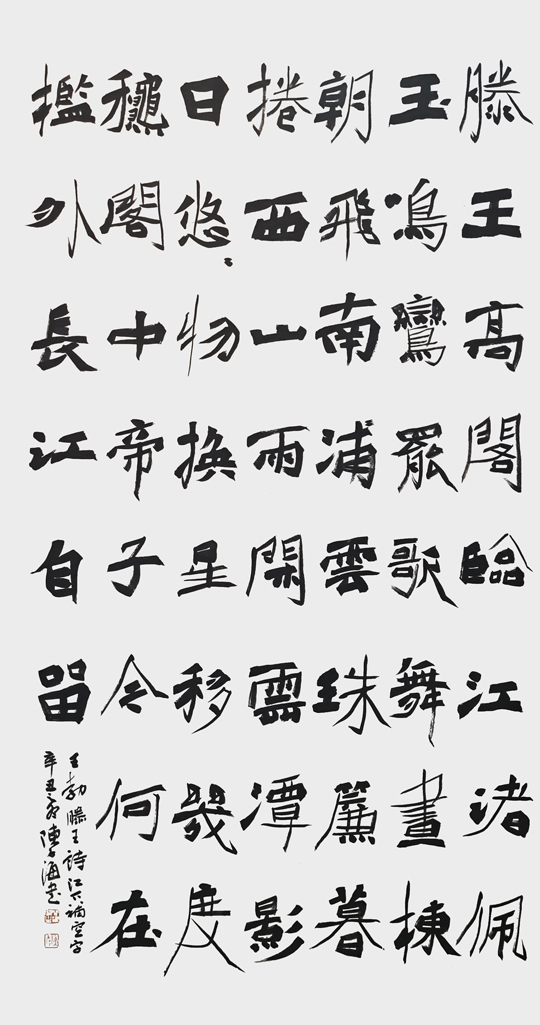 滕王高閣臨江渚佩
玉鳴鸞罷歌舞畫棟
朝飛南浦雲珠簾暮
捲西山雨閑雲潭影
日悠〻物換星移幾度
龝閣中帝子今何在
檻外長江自留
王勃滕王詩江下補空字
辛丑 陳 海書